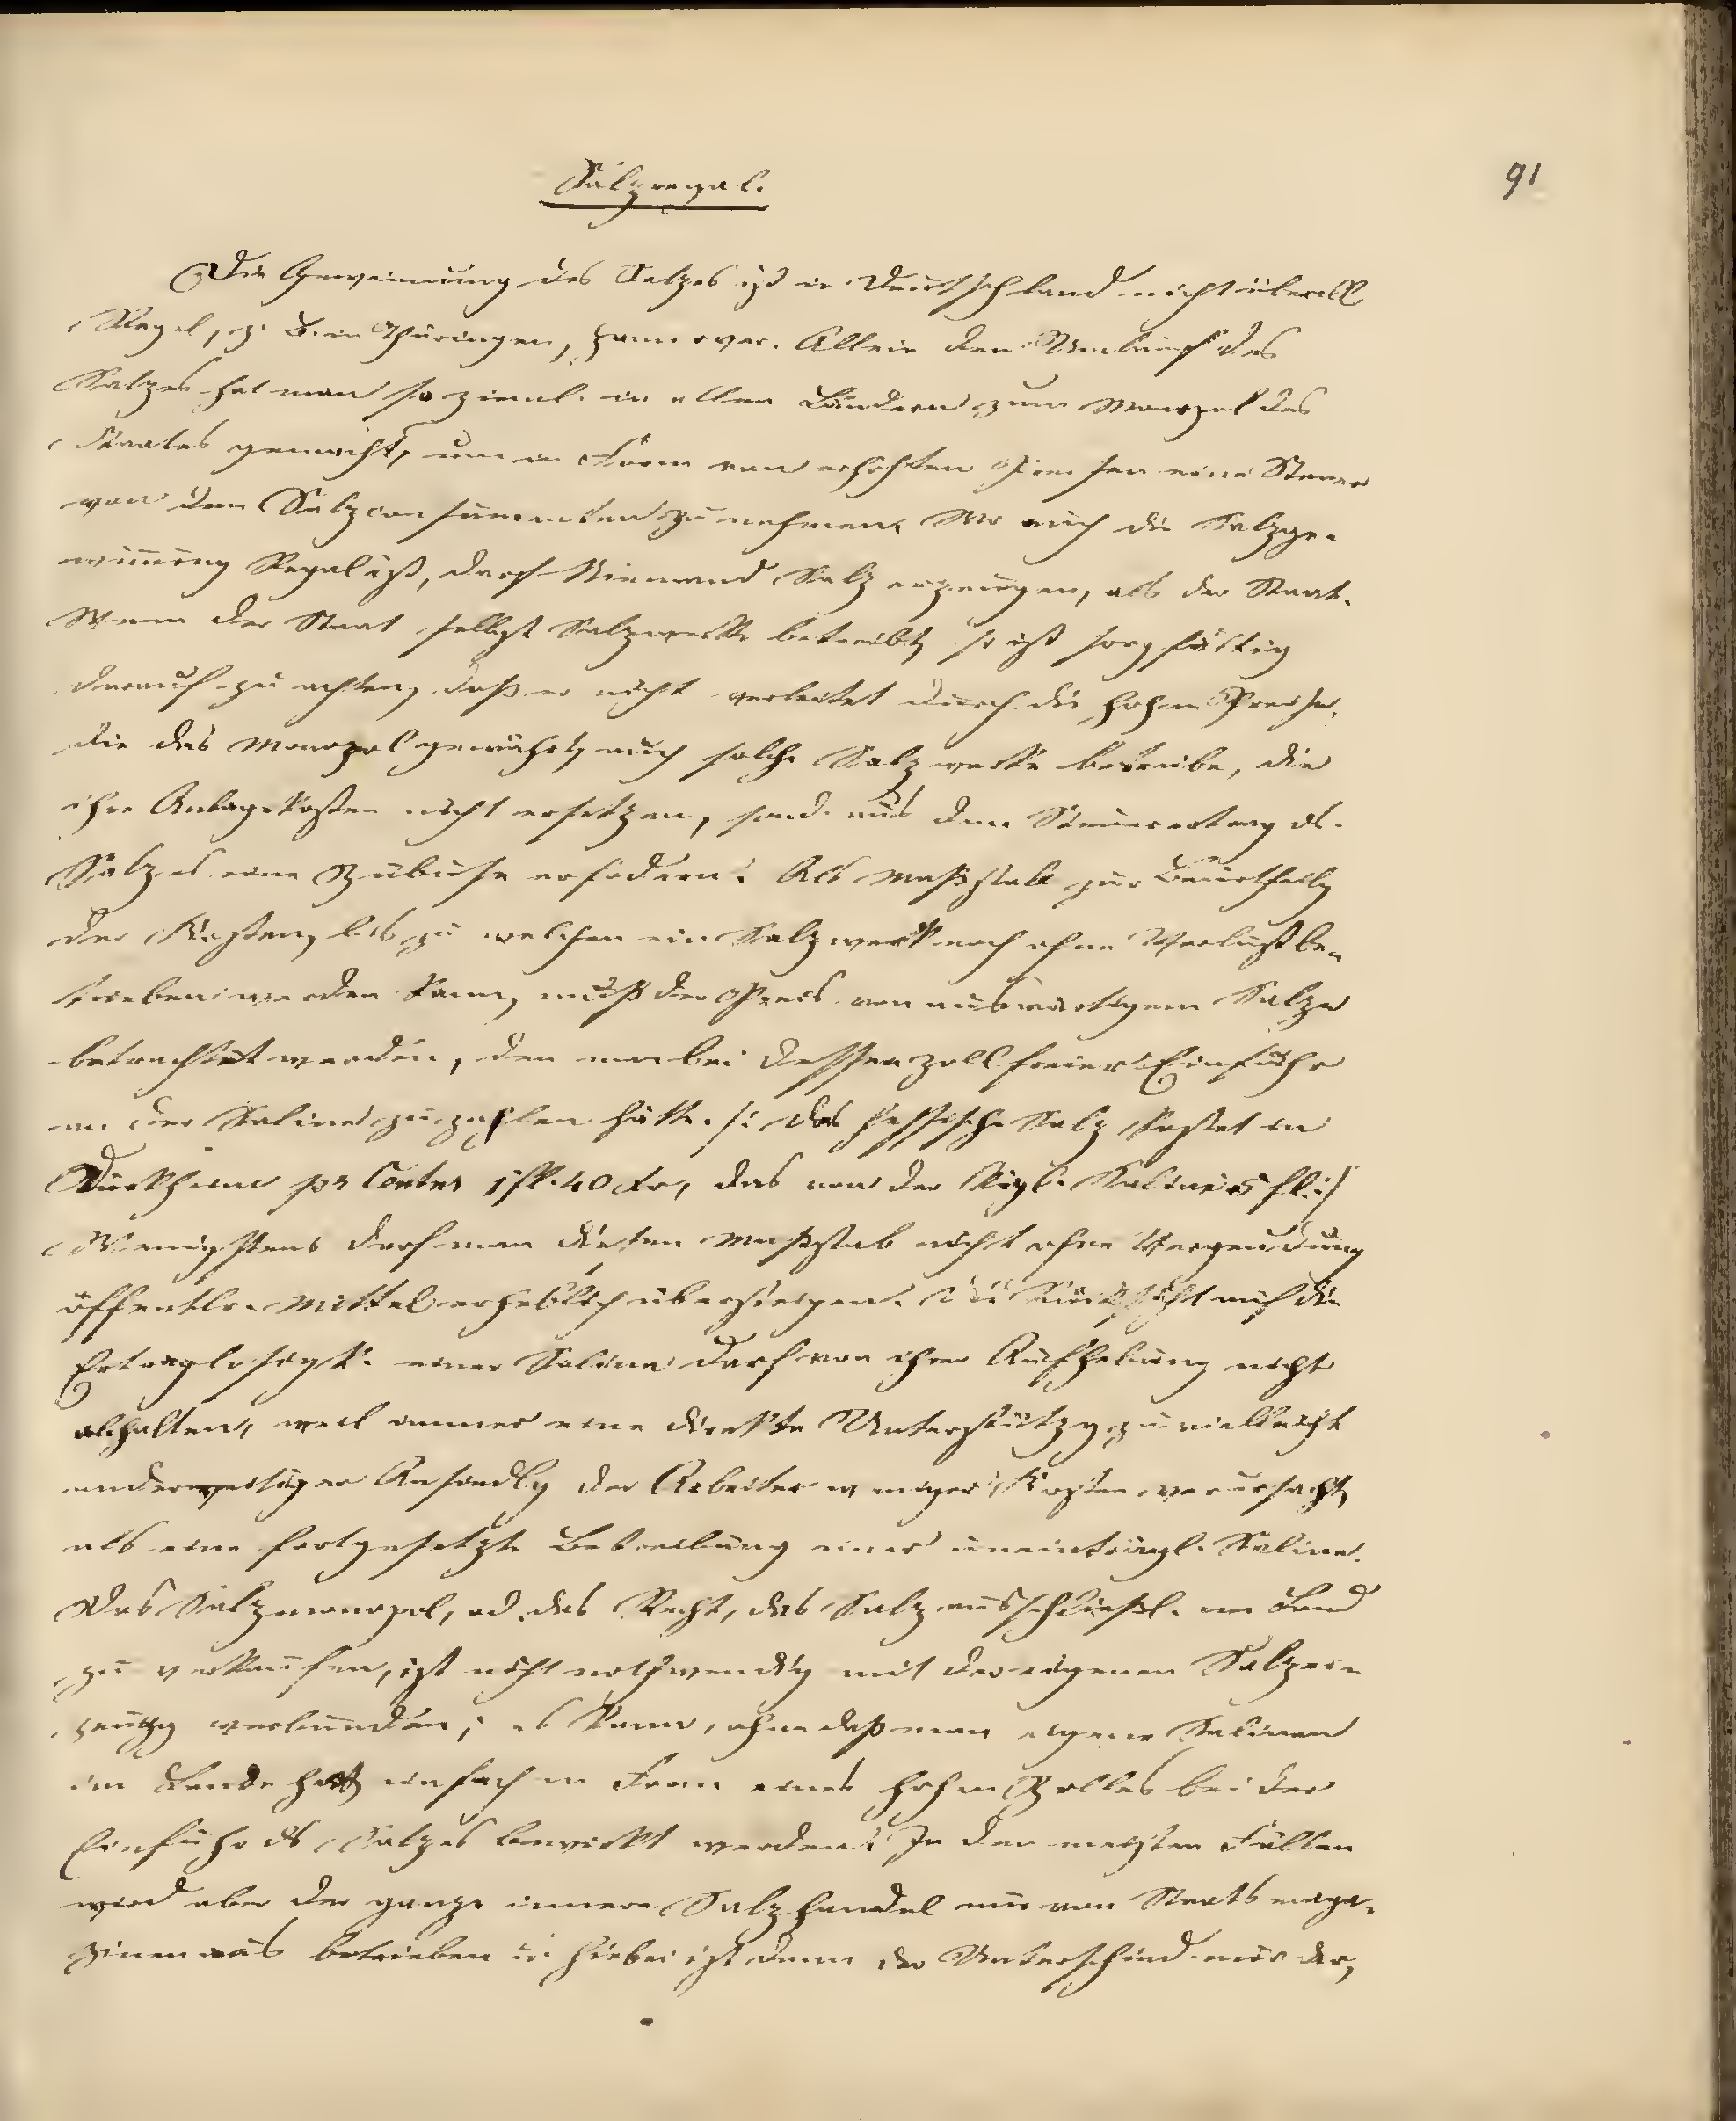 Salzregal.
91
Die Gewinnung des Salzes ist in Deutschland nicht überall
Regal, z. B. in Thüringen, Hannover. Allein den Verkauf des
Salzes hat man so zieml. in allen Ländern zum Monopol des
Staates gemacht, um in Form von erhöhten Preisen eine Steuer
von den Salzconsumenten zu nehmen. Wo auch die Salzge-
winnung Regal ist, darf Niemand Salz erzeugen, als der Staat.
Wenn der Staat selbst Salzwerke betreibt, so ist sorgfältig
darauf zu achten, daß er nicht verleitet durch die hohen Preise,
die das Monopol gewährt, auch solche Salzwerke betreibe, die
ihre Anlagekosten nicht ersetzen, sond. aus dem Steuerertrag ds.
Salzes eine Zubuße erfodern. Als Maßstab zur Beurtheilg
der Kosten, bis zu welchen ein Salzwerk noch ohne Verlust be-
trieben werden kann, muß der Preis von auswärtigem Salze
betrachtet werden, den man bei dessen zollfreier Einfuhr
an der Saline zu zahlen hätte. /: Das hessische Salz kostet in
Dürkheim pr Centner 1 fl. 40 Xr, das von der Kgl. Saline 5 fl. :/
Wenigstens darf man diesen Maßstab nicht ohne Vergeudung
öffentlr. Mittel erheblich übersteigen. Die Rücksicht auf die
Ertraglosigk. einer Saline darf von ihrer Aufhebung nicht
abhalten, weil immer eine direkte Unterstützg zu vielleicht
anderweitiger Ansiedlg der Arbeiter weniger Kosten verursacht,
als eine fortgesetzte Betreibung einer uneinträgl. Saline.
Das Salzmonopol, od. das Recht, das Salz ausschließl. im Land
zu verkaufen, ist nicht nothwendig mit der eigenen Salzer-
zeugg verbunden; es kann, ohne daß man eigene Salinen
im Lande hat, einfach in Form eines hohen Zolles bei der
Einfuhr ds Salzes bewirkt werden. In den meisten Fällen
wird aber der ganze innere Salzhandel nur von Staatsmaga-
zinen aus betrieben u. hiebei ist dann der Unterschied nur der,